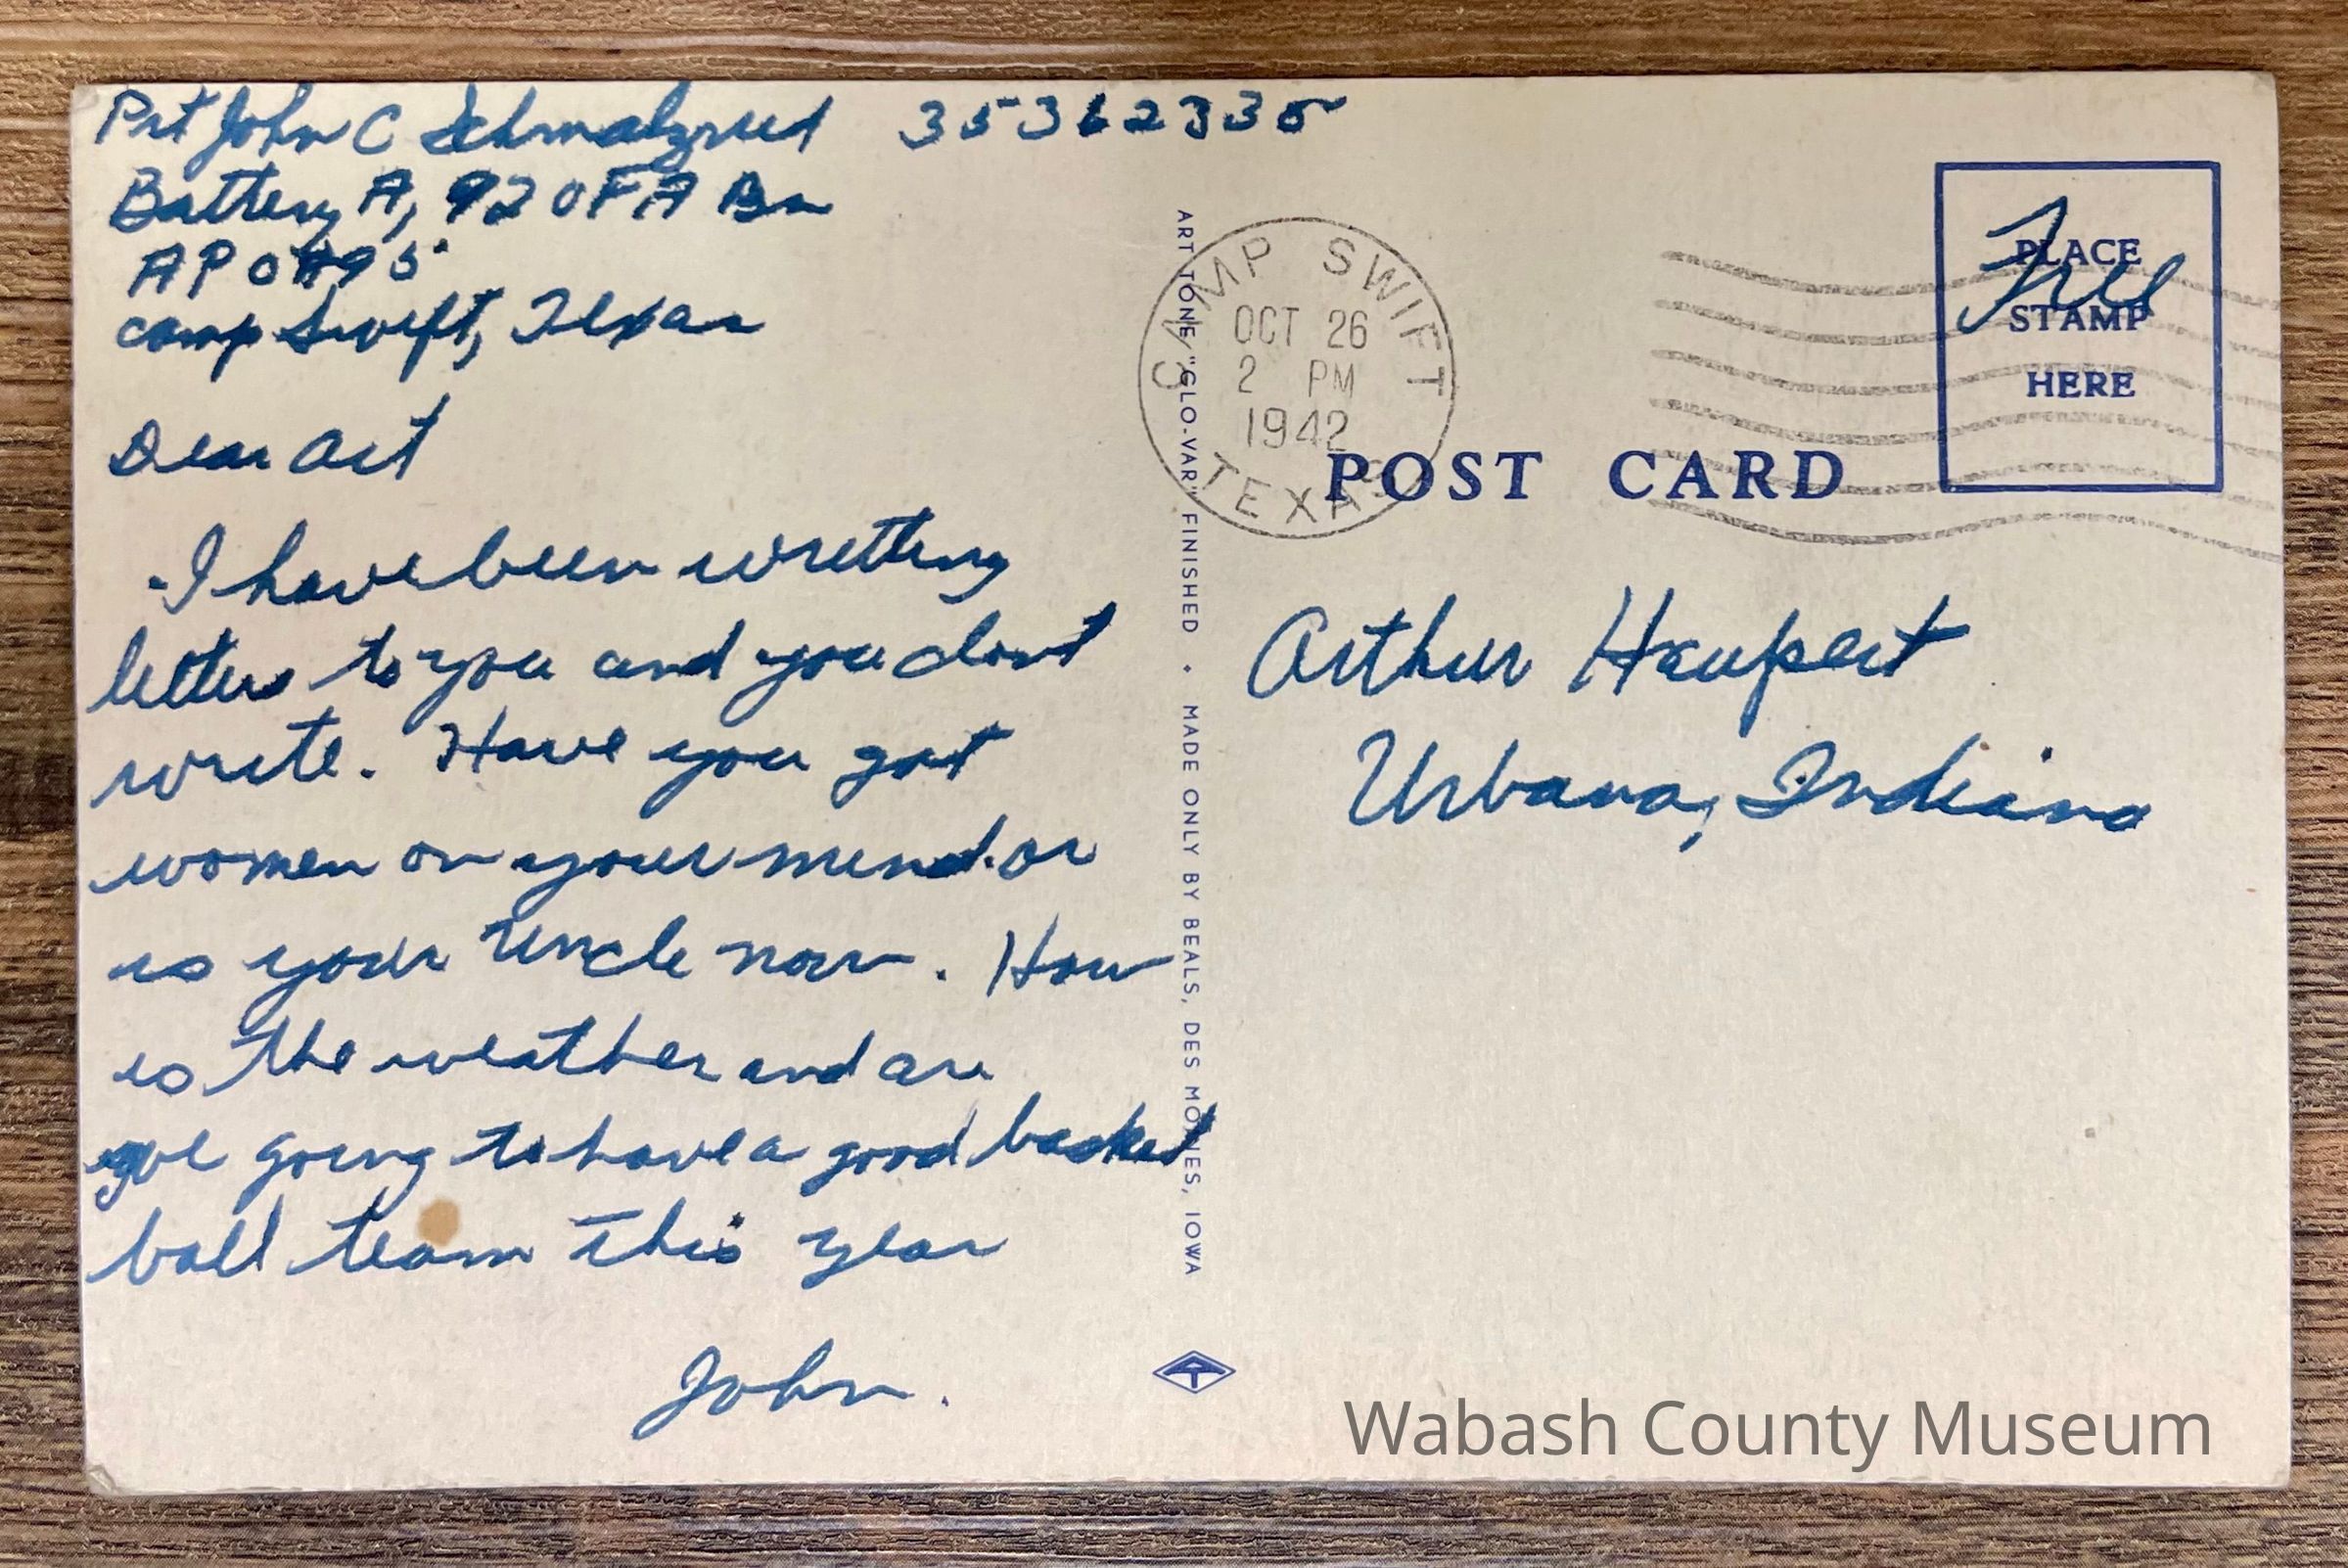 Pvt John C Schmalzried 35362335
Battery A, 920 FA Bn
APO #95
Camp Swift, Texas
Dear Art
I have been wretting
letters to you and you dont
write. Have you got
women on your mind. or
is your Uncle now. How
is the weather and are
you going to have a good basket
ball team this year
John.
ART TONE "GLO-VAR" FINISHED • MADE ONLY BY BEALS, DES MOINES, IOWA
CAMP SWIFT
OCT 26
2 PM
1942
TEXAS
POST CARD
PLACE
STAMP
HERE
Free
Arthur Haupert
Urbana, Indiana
Wabash County Museum